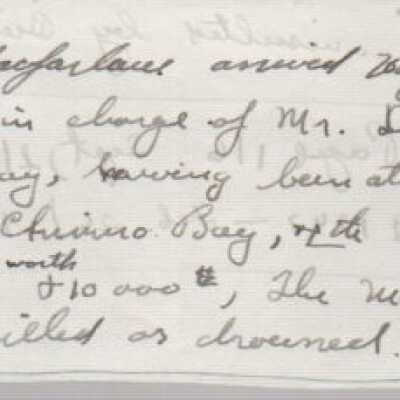 acfarlane arrived
in charge of Mr.
ay, having been at
Chimmo Bay, & the
worth
$10000, The M
illed or drowned.